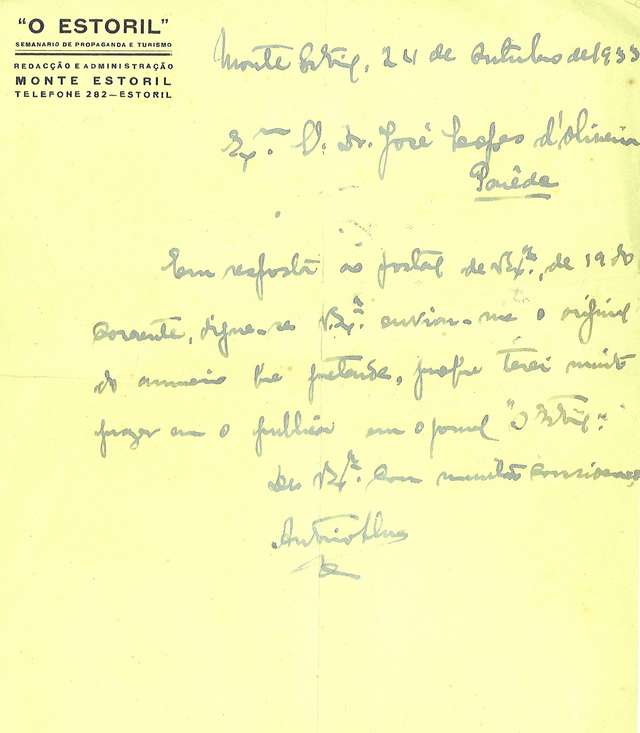 "O ESTORIL"
SEMANARIO DE PROPAGANDA E TURISMO
REDACÇÃO E ADMINISTRAÇÃO
MONTE ESTORIL
TELEFONE 282—ESTORIL
Monte Estoril, 24 de Outubro de 1933
Exmo. D. Dr. José Lopes d'Oliveira
Parêde
Em resposta ao postal de V. Exa., de 19 do
corrente, digne-se V. Exa. enviar-me o original
do anuncio que pretende, porque terei muito
prazer em o publicar em o jornal "O Estoril"
De V. Exa. com muita